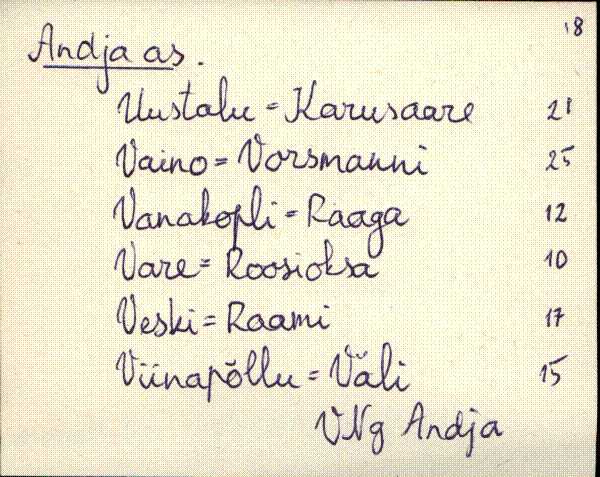 18
Andja as.
Uustalu = Karusaare 21
Vaino = Vorsmanni 25
Vanakopli = Raaga 12
Vare = Roosioksa 10
Veski = Raami 17
Viinapõllu = Väli 15
VNg Andja